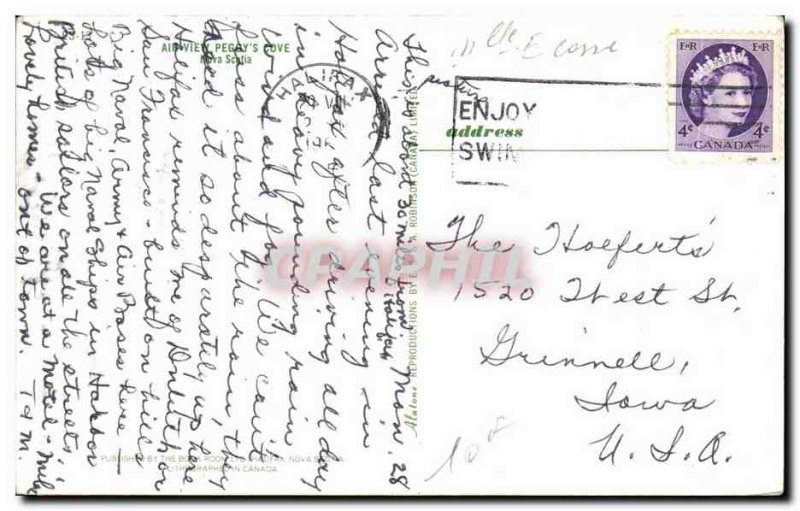 AIR VIEW, PEGGY'S COVE
Nova Scotia
This is about 30 miles from Halifax
Mon. 28
Arrived last evening in
Halifax after driving all day
in heavy pouring rain
wind and fog. We can't
fuss about the rain they
need it so desparately up here
Halifax reminds me of Duluth or
San Francisco - built on hills
Big Naval, Army & Air Bases here -
Lots of big Naval Ships in Harbor
British sailors on all the streets.
Lovely homes - We are at a motel - mile
out of town. T & M.
PUBLISHED BY THE BOOK ROOM, HALIFAX, NOVA SCOTIA
LITHOGRAPHED IN CANADA
REPRODUCTIONS BY ROBINSON (CANADA) LIMITED
HALIFAX
ENJOY
SWIM
address
E R E R
4¢ 4¢
CANADA
The Hoeferts
1520 West St.
Grinnell,
Iowa
U.S.A.
CPAPHIL